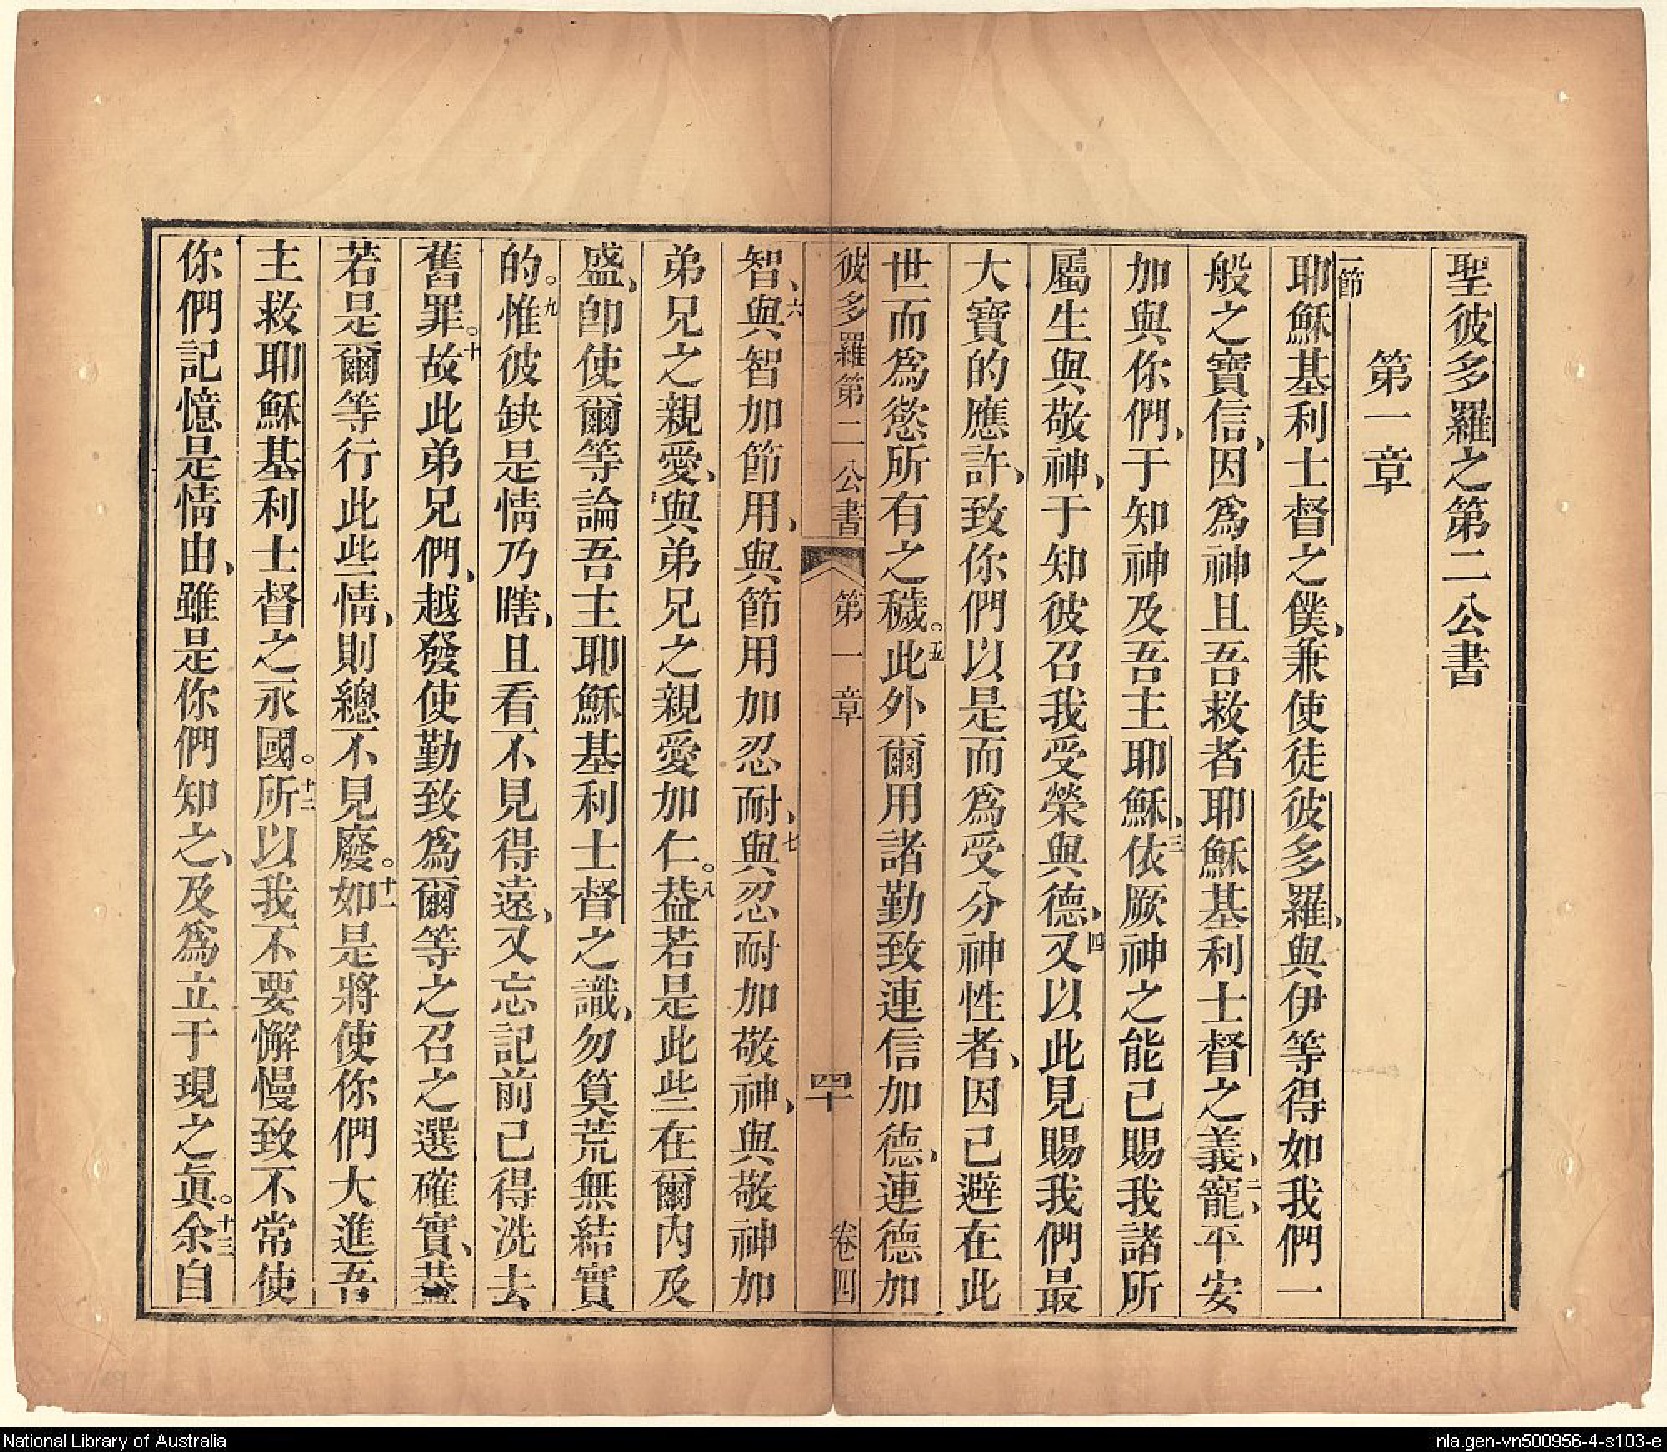 聖彼多羅之第二公書
第一章
一節
耶穌基利士督之僕、兼使徒彼多羅、與伊等得如我們一
般之寶信、因爲神且吾救者耶穌基利士督之義、二寵、平安
加與你們、于知神及吾主耶穌、三依厥神之能己賜我諸所
屬生與敬神、于知彼召我受榮與德、四又以此見賜我們最
大寶的應許、致你們以是而爲受分神性者、因己避在此
世而爲慾所有之穢。五此外爾用諸勤致連信加德、連德加
彼多羅第二公書 第一章 四十 卷四
智、六與智加節用、與節用加忍耐、七與忍耐加敬神、與敬神加
弟兄之親愛、與弟兄之親愛加仁。八葢若是此些在爾內及
盛、卽使爾等論吾主耶穌基利士督之識、勿算荒無結實
的。九惟彼缺是情乃瞎、且看不見得遠、又忘記前己得洗去
舊罪。十故此弟兄們、越發使勤致爲爾等之召之選確實、葢
若是爾等行此些情、則總不見廢。十一如是將使你們大進吾
主救耶穌基利士督之永國。十二所以我不要懈慢致不常使
你們記憶是情由、雖是你們知之、及爲立于現之眞。十三余自
National Library of Australia
nla.gen-vn500956-4-s103-e